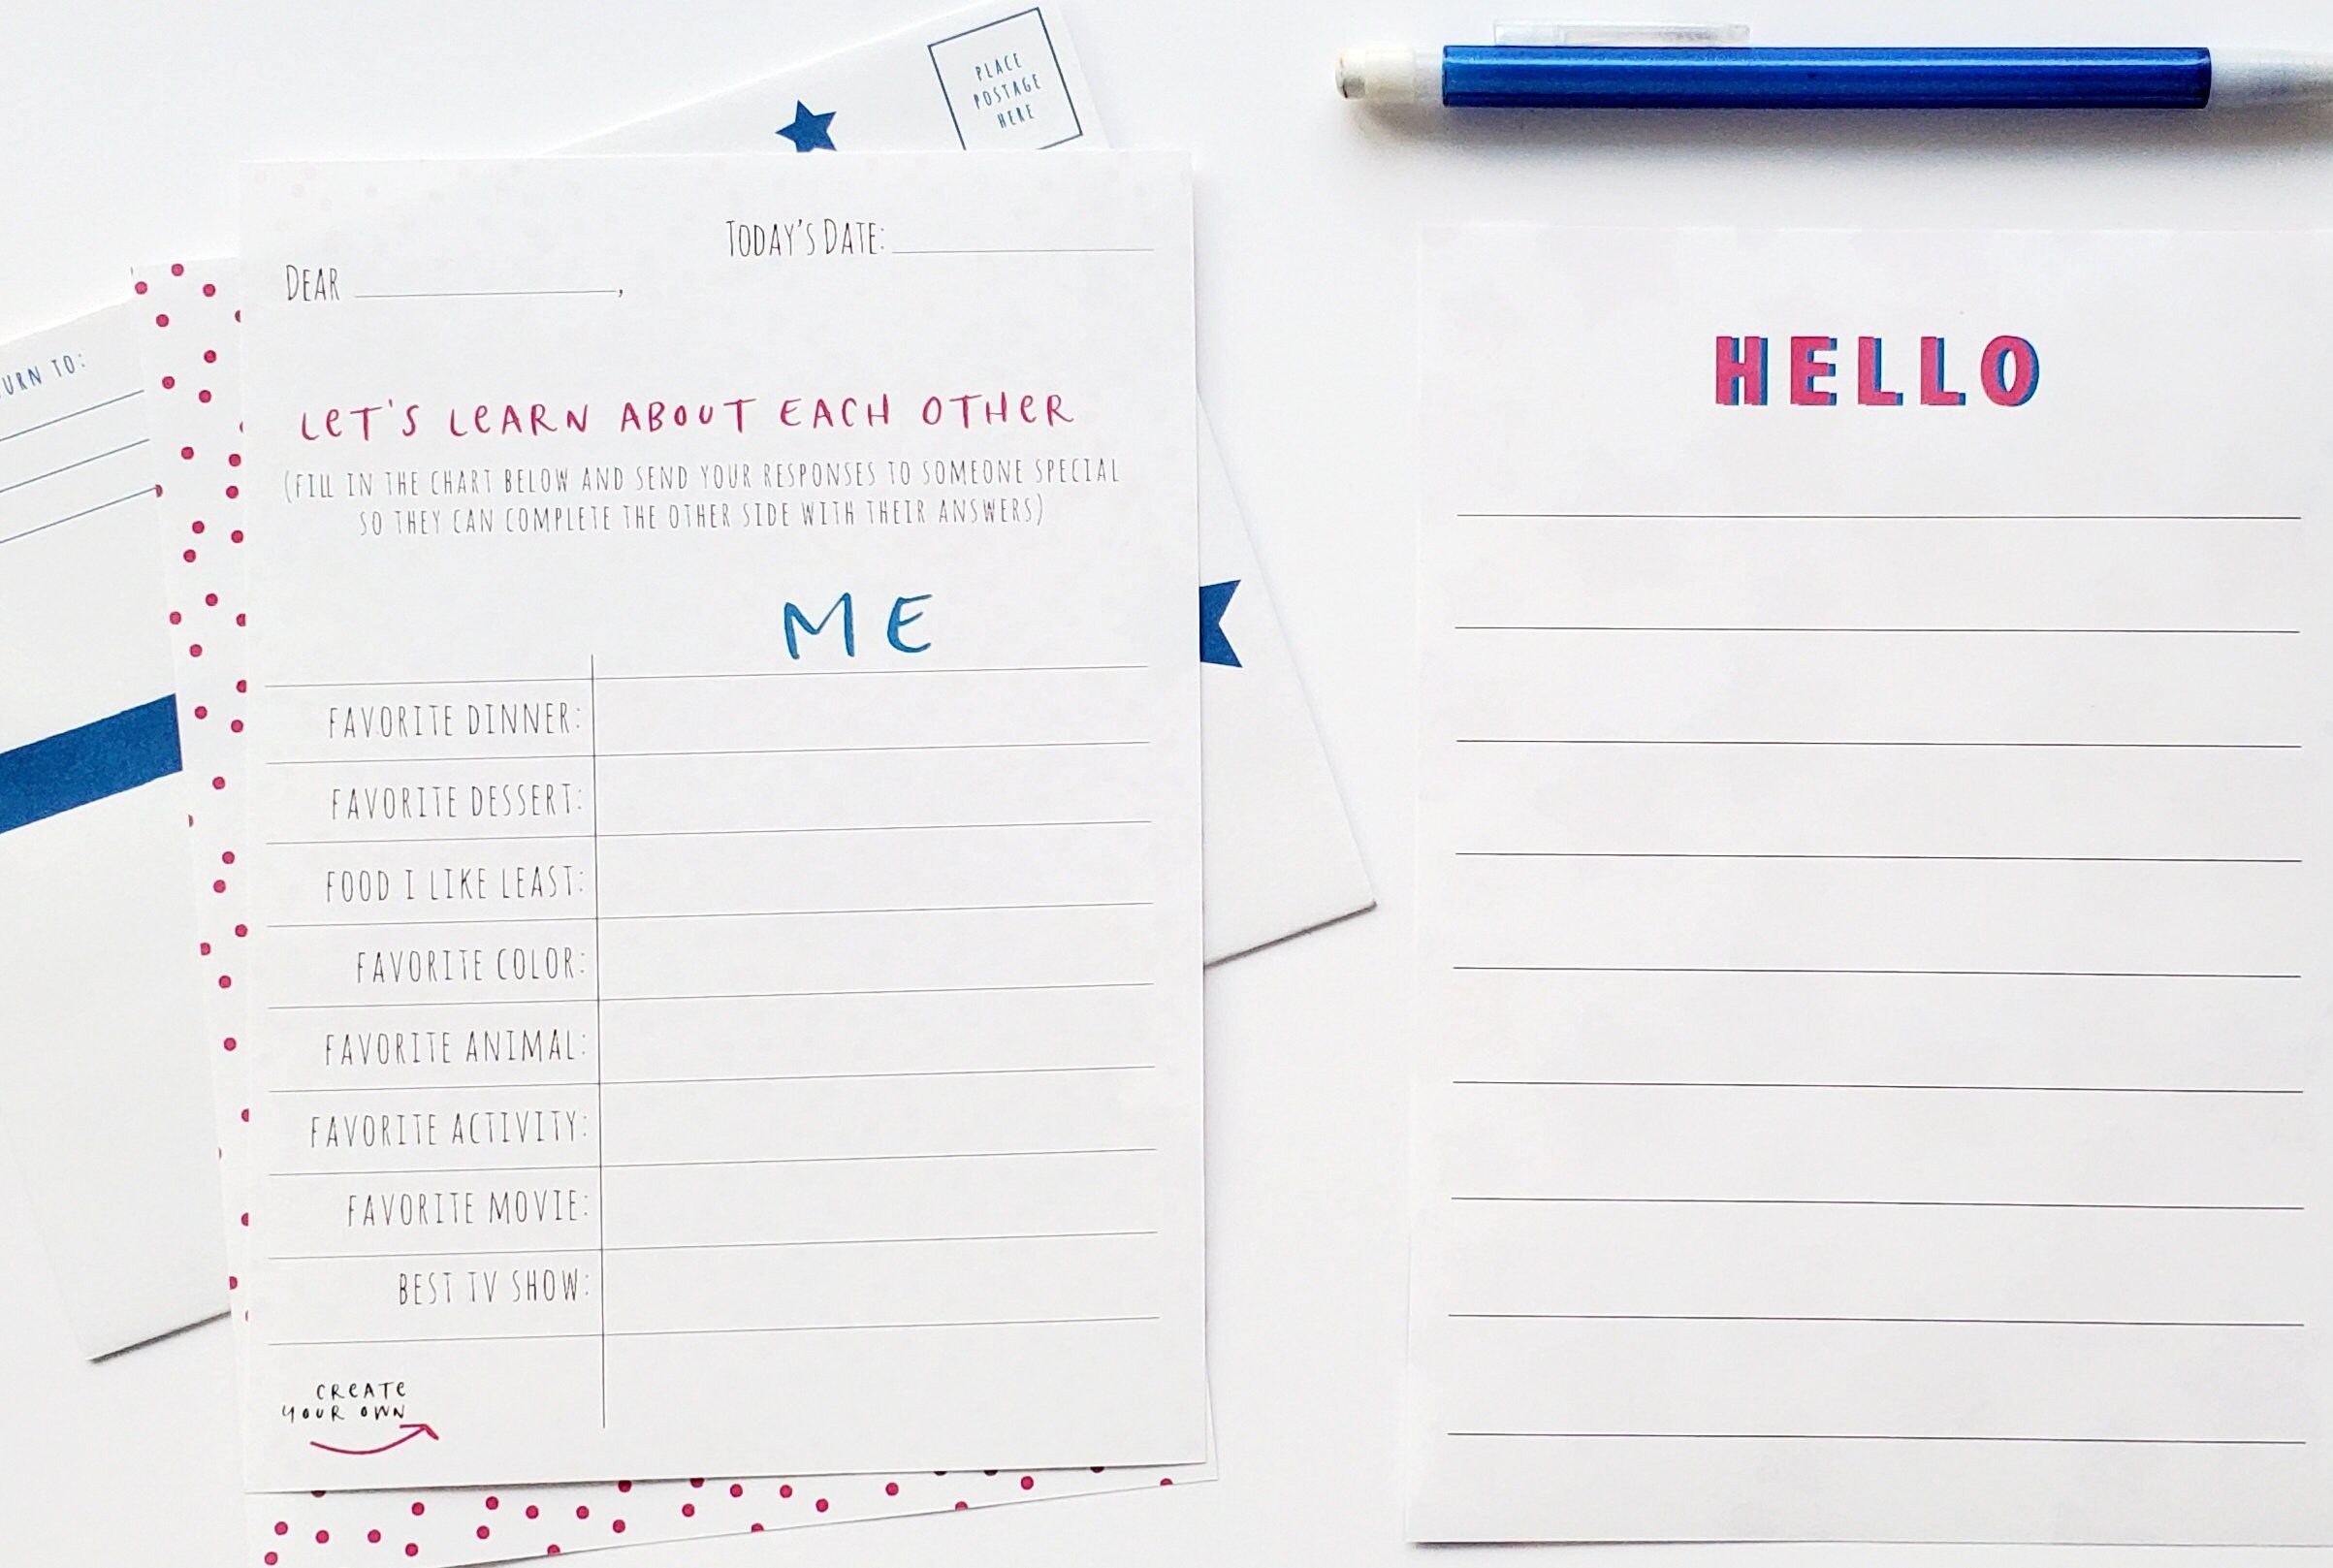 PLACE
POSTAGE
HERE
TODAY'S DATE:
DEAR ,
TO:
LET'S LEARN ABOUT EACH OTHER
(FILL IN THE CHART BELOW AND SEND YOUR RESPONSES TO SOMEONE SPECIAL
SO THEY CAN COMPLETE THE OTHER SIDE WITH THEIR ANSWERS)
ME
FAVORITE DINNER:
FAVORITE DESSERT:
FOOD I LIKE LEAST:
FAVORITE COLOR:
FAVORITE ANIMAL:
FAVORITE ACTIVITY:
FAVORITE MOVIE:
BEST TV SHOW:
CREATE
YOUR OWN
HELLO